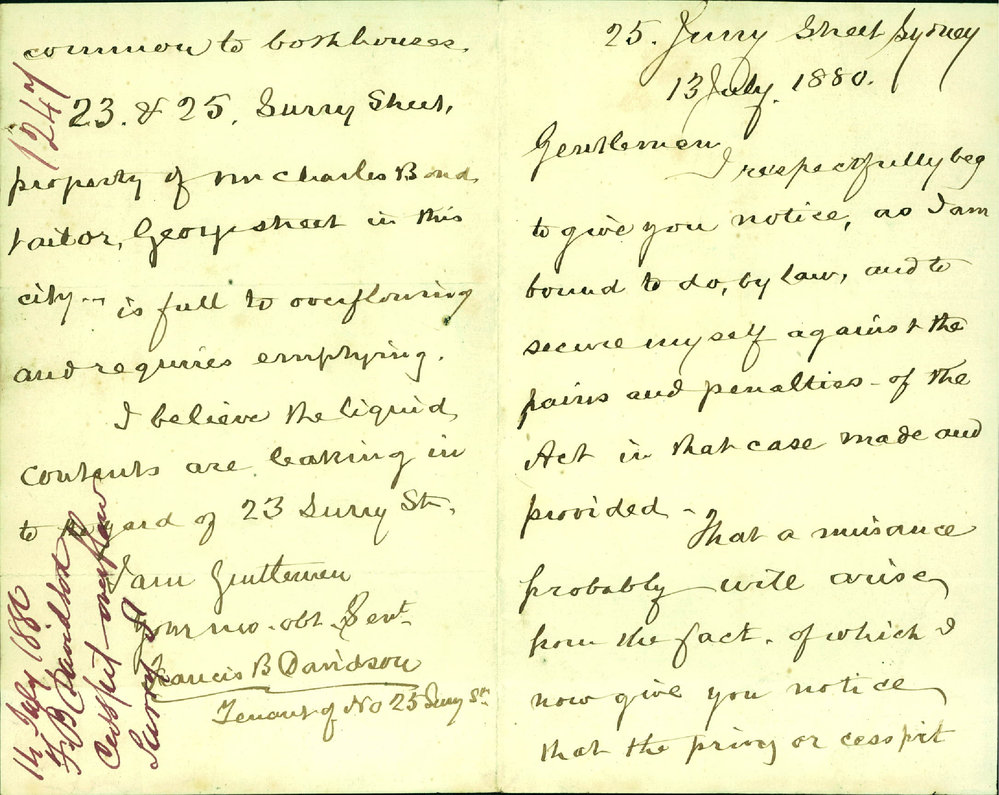 25. Surry Street Sydney
13 July. 1880.
Gentlemen
I respectfully beg
to give you notice, as I am
bound to do, by law, and to
secure myself against the
pains and penalties - of the
Act in that case made and
provided -
That a nuisance
probably will arise
from the fact - of which I
now give you notice
that the privy or cesspit
common to both houses.
23. & 25. Surry Street,
property of Mr Charles Bond
tailor, George street in this
city - is full to overflowing
and requires emptying.
I believe the liquid
contents are leaking in
to yard of 23 Surry St.
I am Gentlemen
Your mo. obt. Servt
Francis B Davidson
Tenant of No 25 Surry St.
1247
14 July 1880
F. B Davidson
Cesspit overflow
Surry St